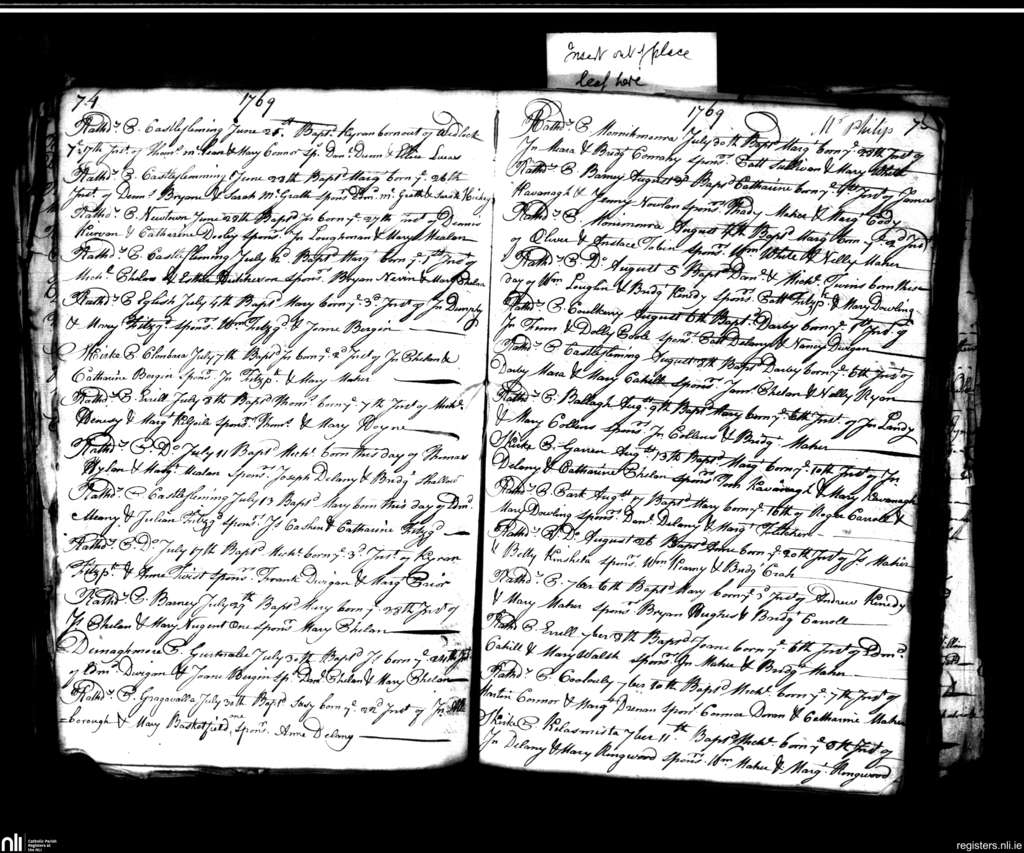 Insert out of place
leaf here
74 1769
Rathd. C. Castlefleming June 25th Bapt. Kyran born out of Wedlock
ye 17th Inst. of Thoms. & Mary Connor sp. Danl. Dunn & Elenr Lucas
Rathd. C. Castleflemming June 28th Baptd Marg born ye 26th
Inst of Denns Bryone & Sarah McGrath Sponrs Edm. McGrath & Sarah Hickey
Rathd. C. Newtown June 29th Baptd Jn born ye 27th Inst of Dennis
Kurvan & Catharine Dooley sponrs Jn Loughman & Mary Healan
Rathd. C. Castlefleming July 2d Baptd Marg born ye 1st Inst of
Michl. Phelan & Esther sponrs Bryan Nevin & Mary Phelan
Rathd. C. Eglish July 4th Baptd Mary born ye 3d Inst of Jn Dumpsy
& Mary Fitzgd sponrs Wm Fitzgd & Joane Bergin
Skirke C. Clonbara July 7th Baptd Jn born ye 2d Inst of Jn Phelan &
Catharine Bergin Sponrs Jn Fitzpk & Mary Maher
Rathd. C. Errill July 8th Baptd Thoms born ye 7th Inst of Michl.
& Margt Kilfoile sponrs Thoms. & Mary Doyne
Rathd. C. Do July 11 Baptd Michl. born this day of Thomas
Hylan & Margt Healan Sponrs Joseph Delany & Bridgt
Rathd. C. Castlefleming July 13 Baptd Mary born this day of Edm.
Meany & Julian Fitzgd sponrs Js Cashin & Catharine Fitzgd
Rathd. C. Do July 17th Baptd Michl. born ye 3d Inst of Kyran
Fitzpk & Anne Twist sponrs Frank Dwigan & Marg Prior
Rathd. C. Barney July 29th Baptd Mary born ye 28th Inst of
Js Phelan & Mary Nugent One sponr Mary Phelan
Dunaghmore C. July 30th Baptd Js born ye 24th Inst
of Edm. Dwigan & Joane Bergin Sp. Danl Phelan & Mary Phelan
Rathd. C. Gragavalla July 30th Baptd Lucy born ye 22d Inst of Jn
borough & Mary Basketfield, sponr. Anne Delany
1769 Mr Philips 75
Rathd. C. Monnimonra July 30th Baptd Marg born ye 28th Inst of
Jn Mara & Bridgt Conrahy sponrs Patt Sullivan & Mary White
Rathd. C. Barney August 3d Baptd Catharine born ye Inst of James
Kavanagh & Jenny Nowlan sponrs Thady Maher & Margt Cody
Rathd. C. Monimonra August 4th Baptd Margt born ye 2d Inst
of Oliver & Anstace Tobin sponrs Wm White & Nelly Maher
Rathd. C. Do August 5 Baptd Danl. & Michl. Twins born this
day of Wm Loughlin & Bridgt Kenedy Sponrs Patt Fitzpk & Mary Dowling
Rathd. C. Coulkerry August 6th Baptd Darby born ye 1st Inst of
Jn Fenn & Dolly Poole Sponrs Patt Delany & Nancy Dwigan
Rathd. C. Castlefleming August 8th Baptd Darby born ye 6th Inst of
Darby Mara & Mary Cahill sponrs Jams. Phelan & Nelly Ryan
Rathd. C. Ballagh Augst 9th Baptd Mary born ye 6th Inst of Jn Landy
& Mary Collins sponrs Jn Collins & Bridgt Maher
Skirke C. Garren Augst 13th Baptd Marg born ye 10th Inst of Jn
Delany & Catharine Phelan sponrs Tom Kavanagh & Mary Kavanagh
Rathd. C. Park Augst 17 Baptd Mary born ye 16th of Roger Carroll &
Mary Dowling sponrs Danl. Delany & Margt
Rathd. C. Do August 26 Baptd Anne born ye 20th Inst of Js Maher
& Betty Kinshela sponrs Wm Kearny & Bridgt
Rathd. C. 7ber 6th Baptd Mary born ye 3d Inst of Andrew Kenedy
& Mary Maher sponrs Bryan Hughes & Bridgt Carroll
Rathd. C. Errill 7ber 8th Baptd Joane born ye 6th Inst of Edm.
Cahill & Mary Walsh sponrs Jn Maher & Bridgt Maher
Rathd. C. Coolouly 7ber 10th Baptd Michl. born ye 7th Inst of
Martin Connor & Margt Drenan sponrs Connor Doran & Catharine Maher
Skirke C. Kilasmista 7ber 11th Baptd Michl. born ye 8th Inst of
Jn Delany & Mary Rongwood Sponrs Wm Maher & Margt Rongwood
nli Catholic Parish
Registers at
the NLI
registers.nli.ie